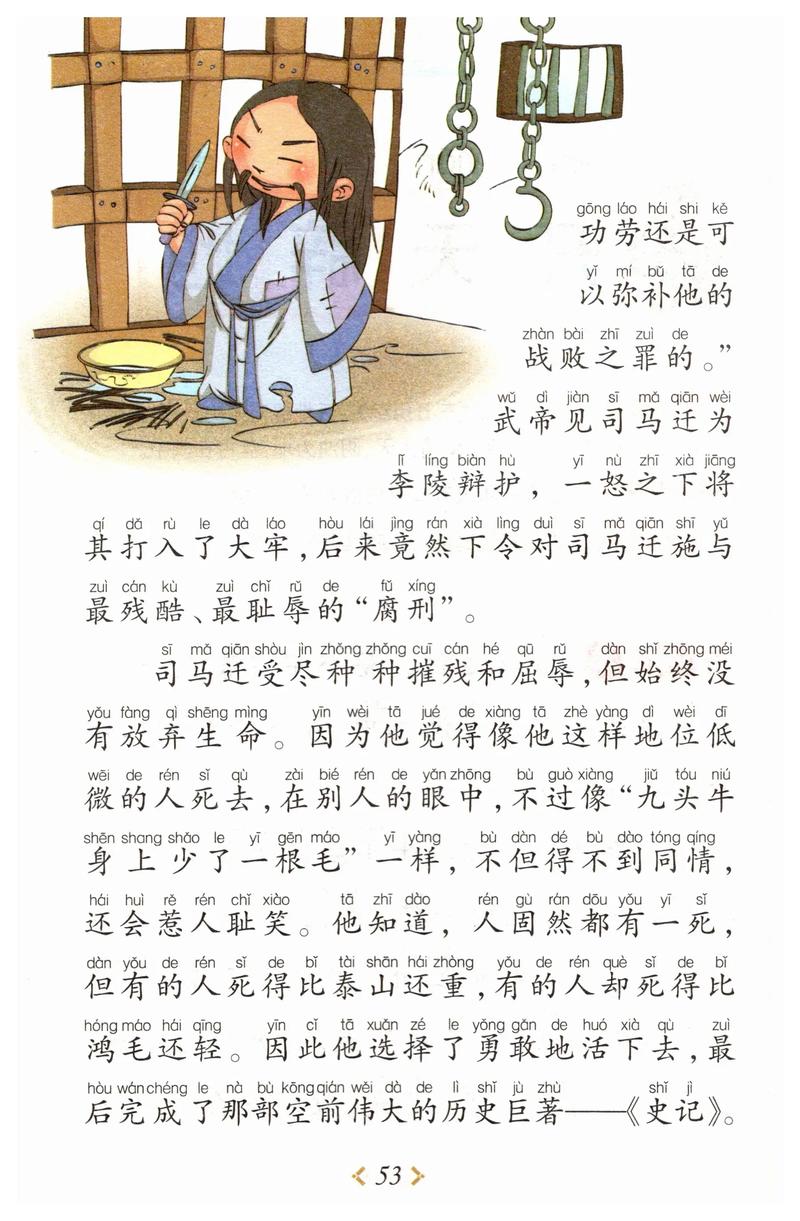 gōng láo hái shi kě
功劳还是可
yǐ mí bǔ tā de
以弥补他的
zhàn bài zhī zuì de
战败之罪的。”
wǔ dì jiàn sī mǎ qiān wèi
武帝见司马迁为
lǐ líng biàn hù yī nù zhī xià jiāng
李陵辩护，一怒之下将
qí dǎ rù le dà láo hòu lái jìng rán xià lìng duì sī mǎ qiān shī yǔ
其打入了大牢，后来竟然下令对司马迁施与
zuì cán kù zuì chǐ rǔ de fǔ xíng
最残酷、最耻辱的“腐刑”。
sī mǎ qiān shòu jìn zhǒng zhǒng cuī cán hé qū rǔ dàn shǐ zhōng méi
司马迁受尽种 种摧残和屈辱，但始终没
yǒu fàng qì shēng mìng yīn wèi tā jué de xiàng tā zhè yàng dì wèi dī
有放弃生命。因为他觉得像他这样地位低
wēi de rén sǐ qù zài bié rén de yǎn zhōng bù guò xiàng jiǔ tóu niú
微的人死去，在别人的眼中，不过像“九头牛
shēn shang shǎo le yī gēn máo yī yàng bù dàn dé bù dào tóng qíng
身上少了一根毛”一样，不但得不到同情，
hái huì rě rén chǐ xiào tā zhī dào rén gù rán dōu yǒu yī sǐ
还会惹人耻笑。他知道，人固然都有一死，
dàn yǒu de rén sǐ de bǐ tài shān hái zhòng yǒu de rén què sǐ de bǐ
但有的人死得比泰山还重，有的人却死得比
hóng máo hái qīng yīn cǐ tā xuǎn zé le yǒng gǎn de huó xià qù zuì
鸿毛还轻。因此他选择了勇敢地活下去，最
hòu wán chéng le nà bù kōng qián wěi dà de lì shǐ jù zhù shǐ jì
后完成了那部空前伟大的历史巨著——《史记》。
53